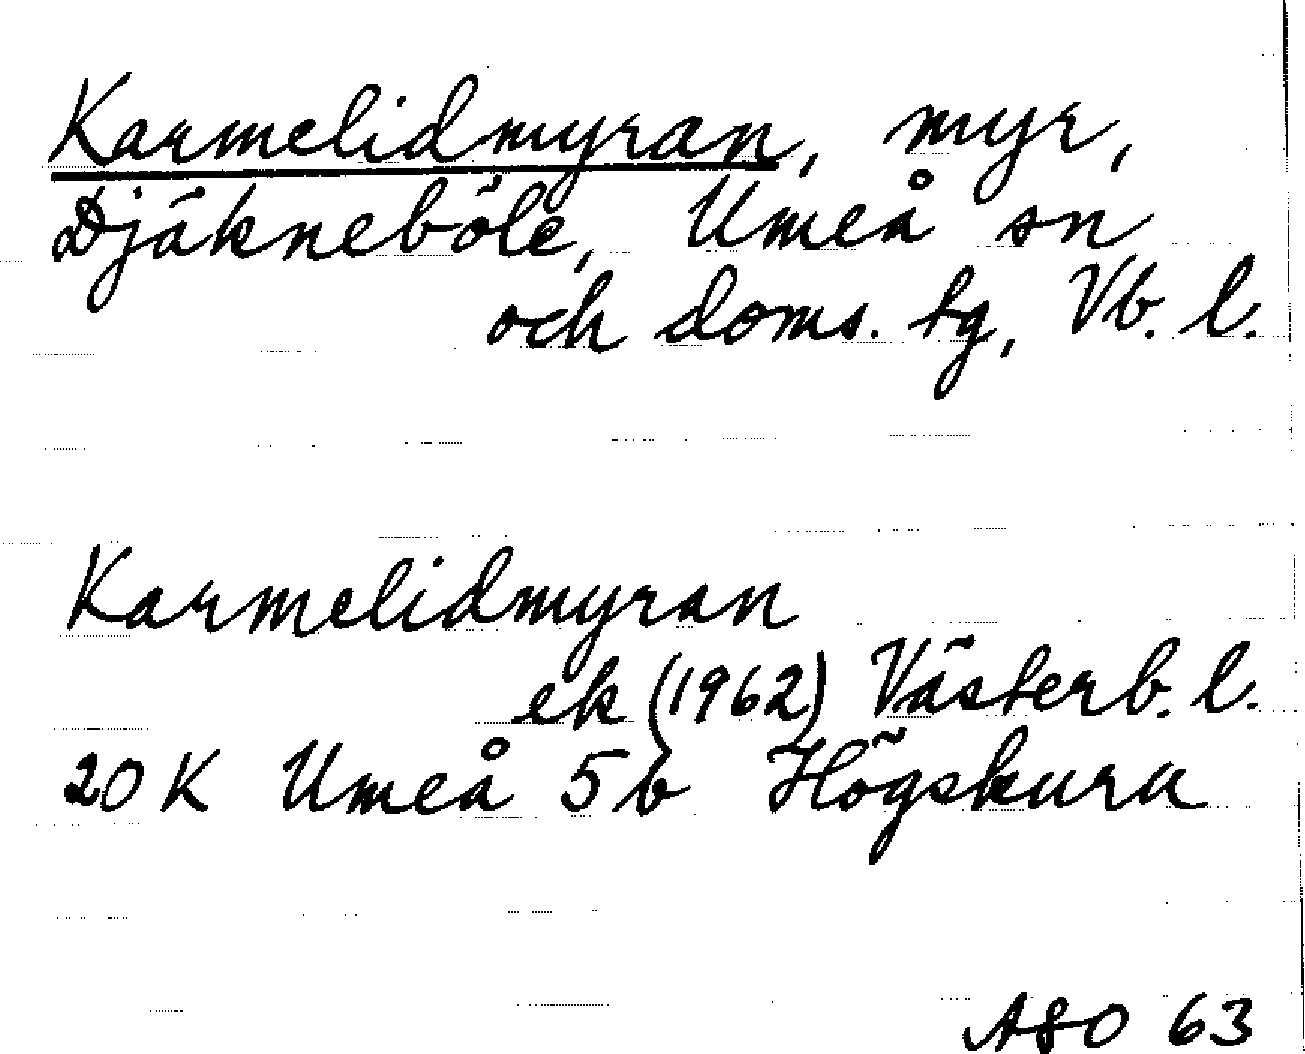 Karmelidmyran, myr,
Djäkneböle, Umeå sn
och doms. tg, Vb. l.
Karmelidmyran
ek (1962) Västerb. l.
20 K Umeå 5b Högskuru
ASO 63